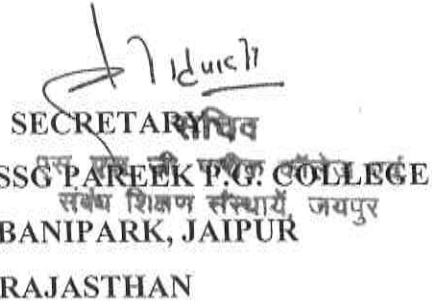 SECRETARY
सचिव
एस एस जी पारीक कॉलेज एवं
SSG PAREEK P.G. COLLEGE
संबंध शिक्षण संस्थायें, जयपुर
BANIPARK, JAIPUR
RAJASTHAN